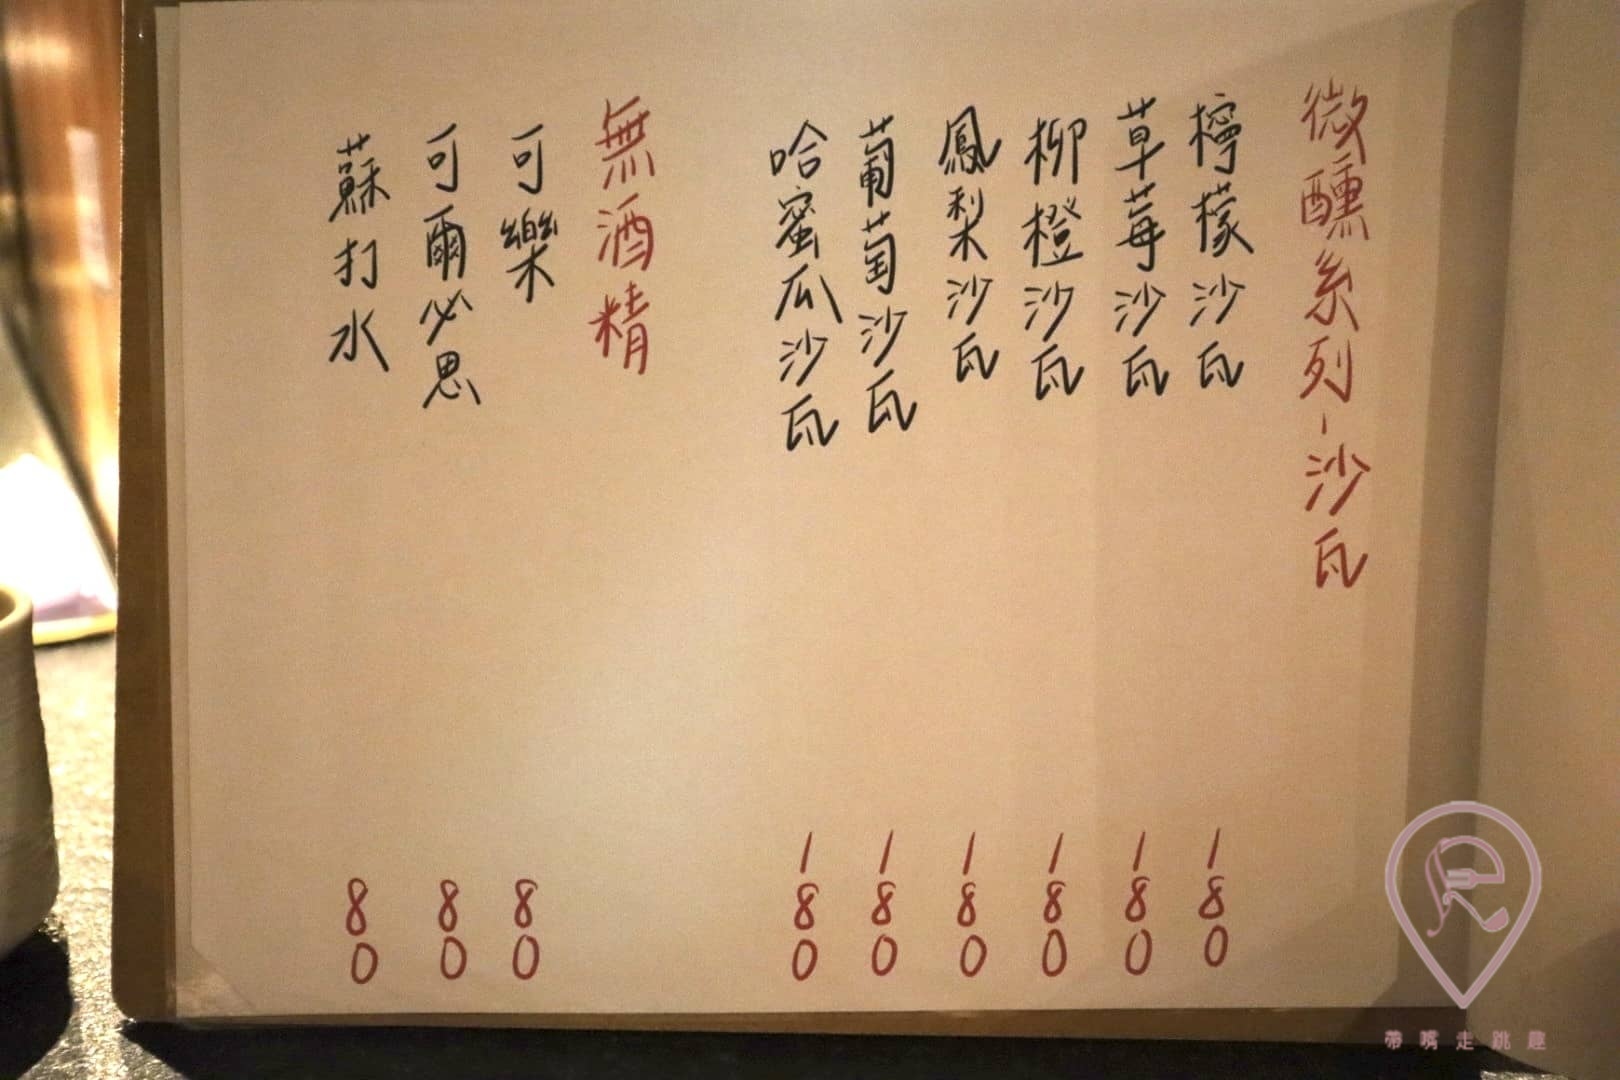 微醺系列-沙瓦
檸檬沙瓦 180
草莓沙瓦 180
柳橙沙瓦 180
鳳梨沙瓦 180
葡萄沙瓦 180
哈蜜瓜沙瓦 180
無酒精
可樂 80
可爾必思 80
蘇打水 80
帶嘴走跳趣